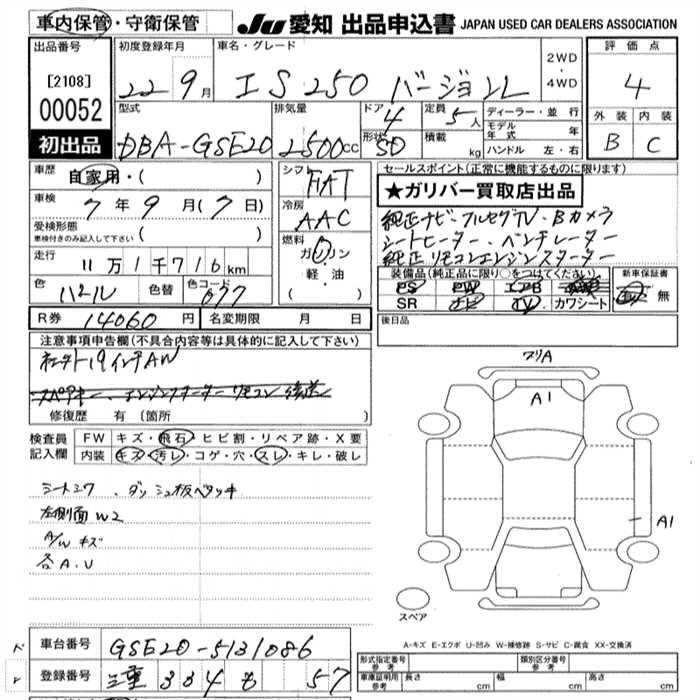 車内保管・守衛保管
JU 愛知 出品申込書 JAPAN USED CAR DEALERS ASSOCIATION
出品番号
[2108]
00052
初出品
初度登録年月
22 9月
車名・グレード
IS250 バージョンL
2WD
・
4WD
評価点
4
外装 内装
B C
型式
DBA-GSE20
排気量
2500cc
ドア
4
形状
SD
定員
5人
積載
kg
ディーラー・並行
モデル年式 年
ハンドル 左・右
車歴
自家用・( )
車検
7年9月(7日)
受検形態
車検付きのみ記入して下さい ( )
走行
11万1千716km
色
パール
色替
色コード
077
シフト
FAT
冷房
AAC
燃料
ガソリン
・
軽油
( )
セールスポイント(正常に機能するものに限ります)
★ガリバー買取店出品
純正ナビ・フルセグTV・Bカメラ
シートヒーター・ベンチレーター
純正リモコンエンジンスターター
装備品(純正品に限り○をつけてください。)
PS PW エアB
SR ナビ TV カワシート
新車保証書
有 無
R券 14060円
名変期限 月 日
後日品
注意事項申告欄(不具合内容等は具体的に記入して下さい)
社外19インチAW
スペアキー、エンジンスターターリモコン後送
修復歴 有 (箇所 )
検査員
記入欄
FW キズ・飛石・ヒビ割・リペア跡・X要
内装 キズ・汚レ・コゲ・穴・スレ・キレ・破レ
シートシワ、ダッシュ板ベタツキ
左側面W2
A/Wキズ
各A.U
フリA
A1
A1
スペア
A-キズ E-エクボ U-凹み W-補修跡 S-サビ C-腐食 XX-交換済
車台番号 GSE20-5131086
登録番号 三重 334 も 57
形式指定番号
参考
類別区分番号
参考
車庫証明用
参考
長さ cm 幅 cm 高さ cm